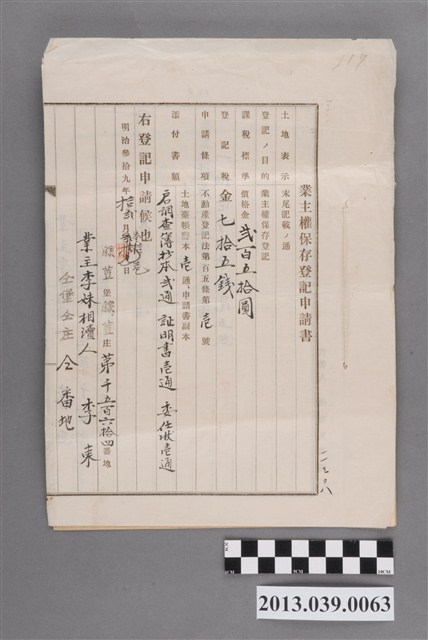 業主權保存登記申請書
土地表示 末尾記載ノ通
登記ノ目的 業主權保存登記
課稅標準 價格金 貳百五拾圓
登記稅 金七拾五錢
申請條項 不動產登記法第百五條第壹號
添付書類 土地臺帳謄本壹通、申請書副本
戶調查簿抄本貳通 証明書壱通 委任狀壱通
右登記申請候也
明治參拾九年拾貳月 日
堡 庄 第千五百六拾四番地
業主李妹相續人 李東
仝堡仝庄 仝番地
217
CM
2013.039.0063